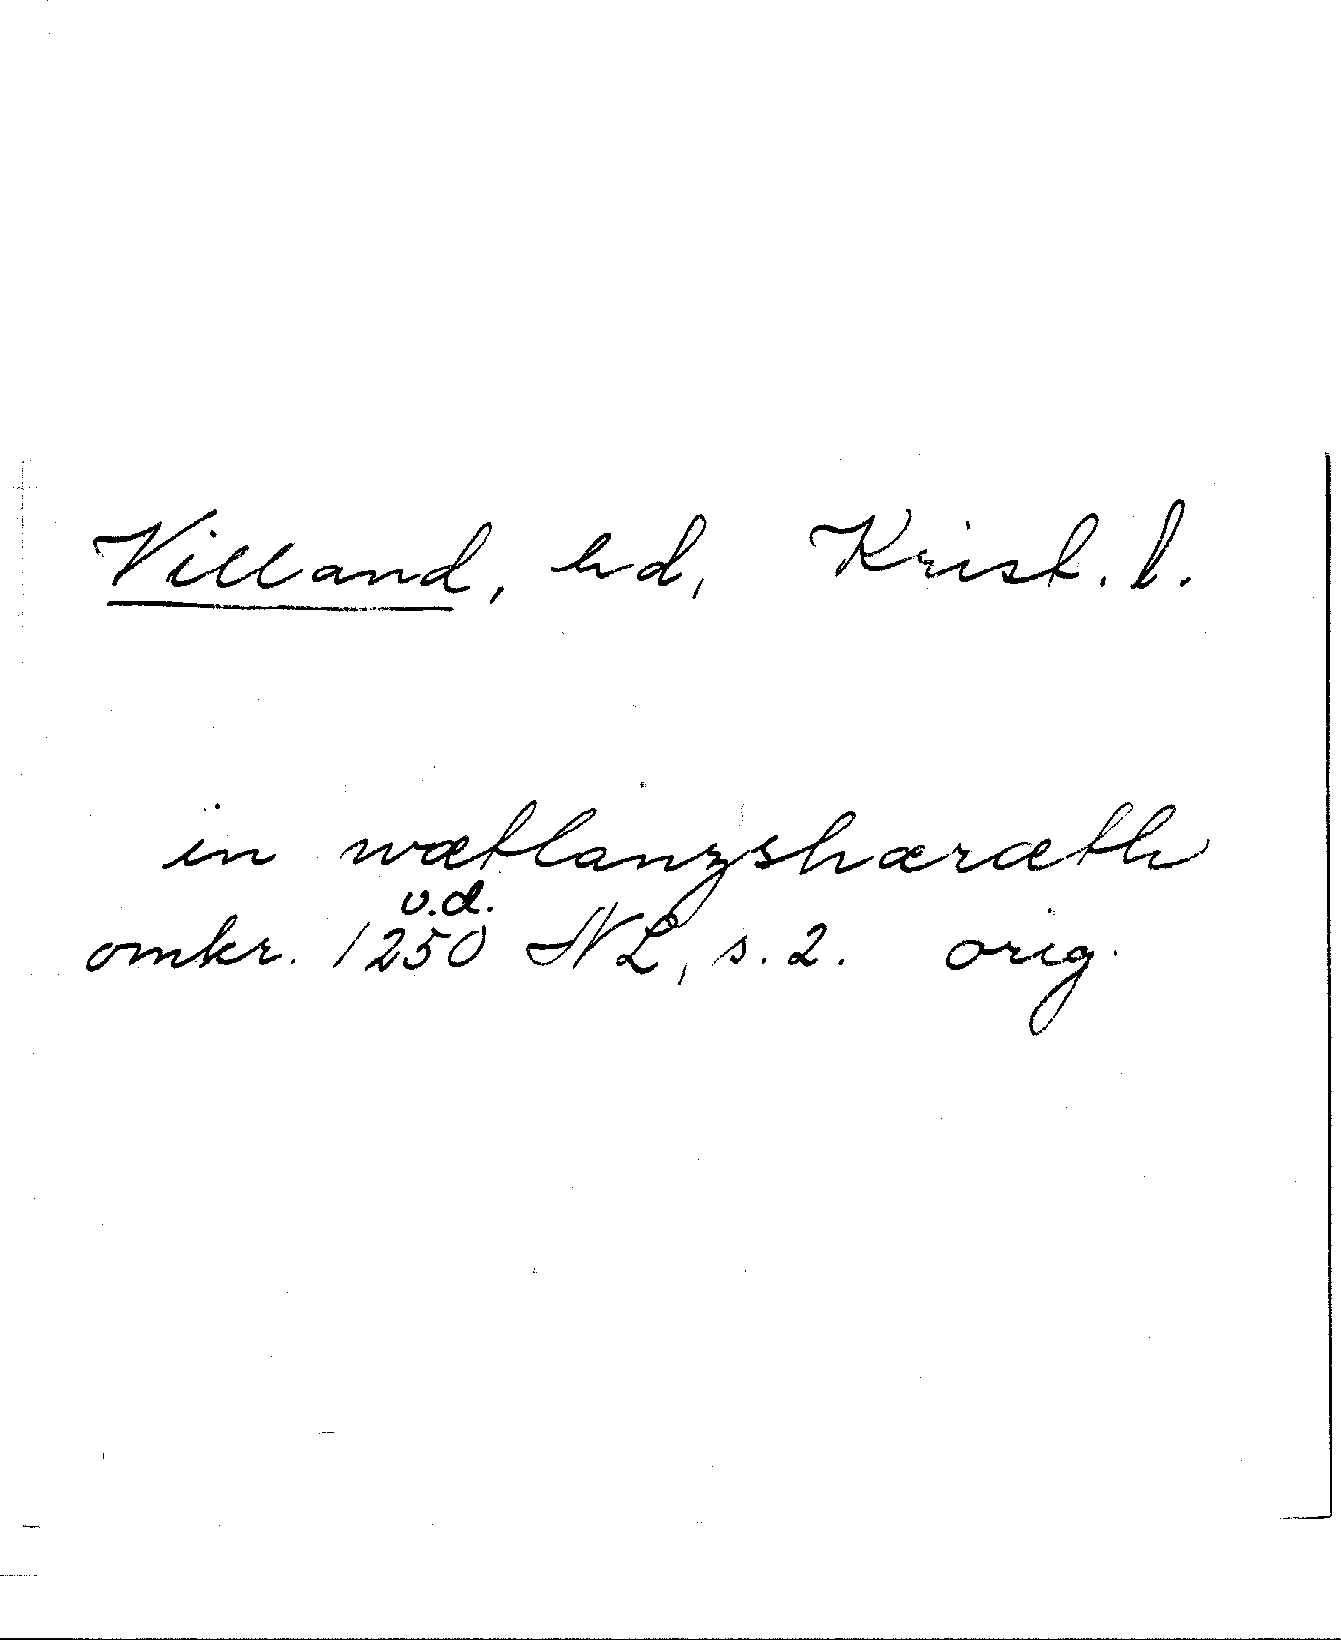 Villand, hd, Krist. l.
in wætlanzshæræth
u.d.
omkr. 1250 NL, s. 2. orig.